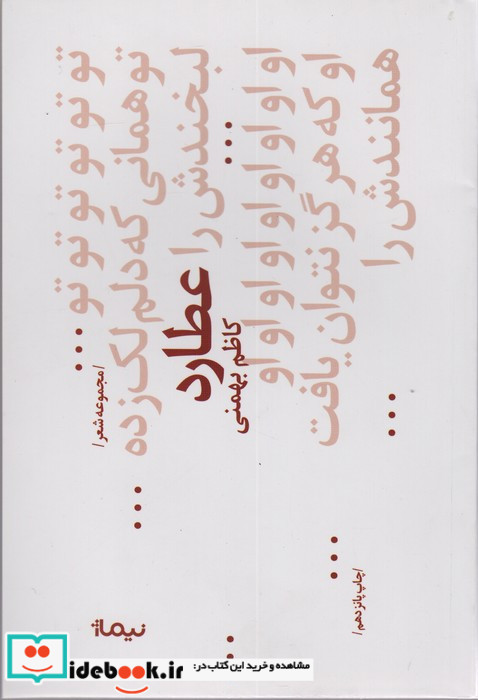 تو تو تو تو تو تو ...
تو همانی که دلم لک زده ...
لبخندش را ...
او او او او او او او او
او که هرگز نتوان یافت ...
همانندش را ...
عطارد
کاظم بهمنی
/مجموعه شعر/
/چاپ پانزدهم/
نیماژ
مشاهده و خرید این کتاب در:
idebook.ir